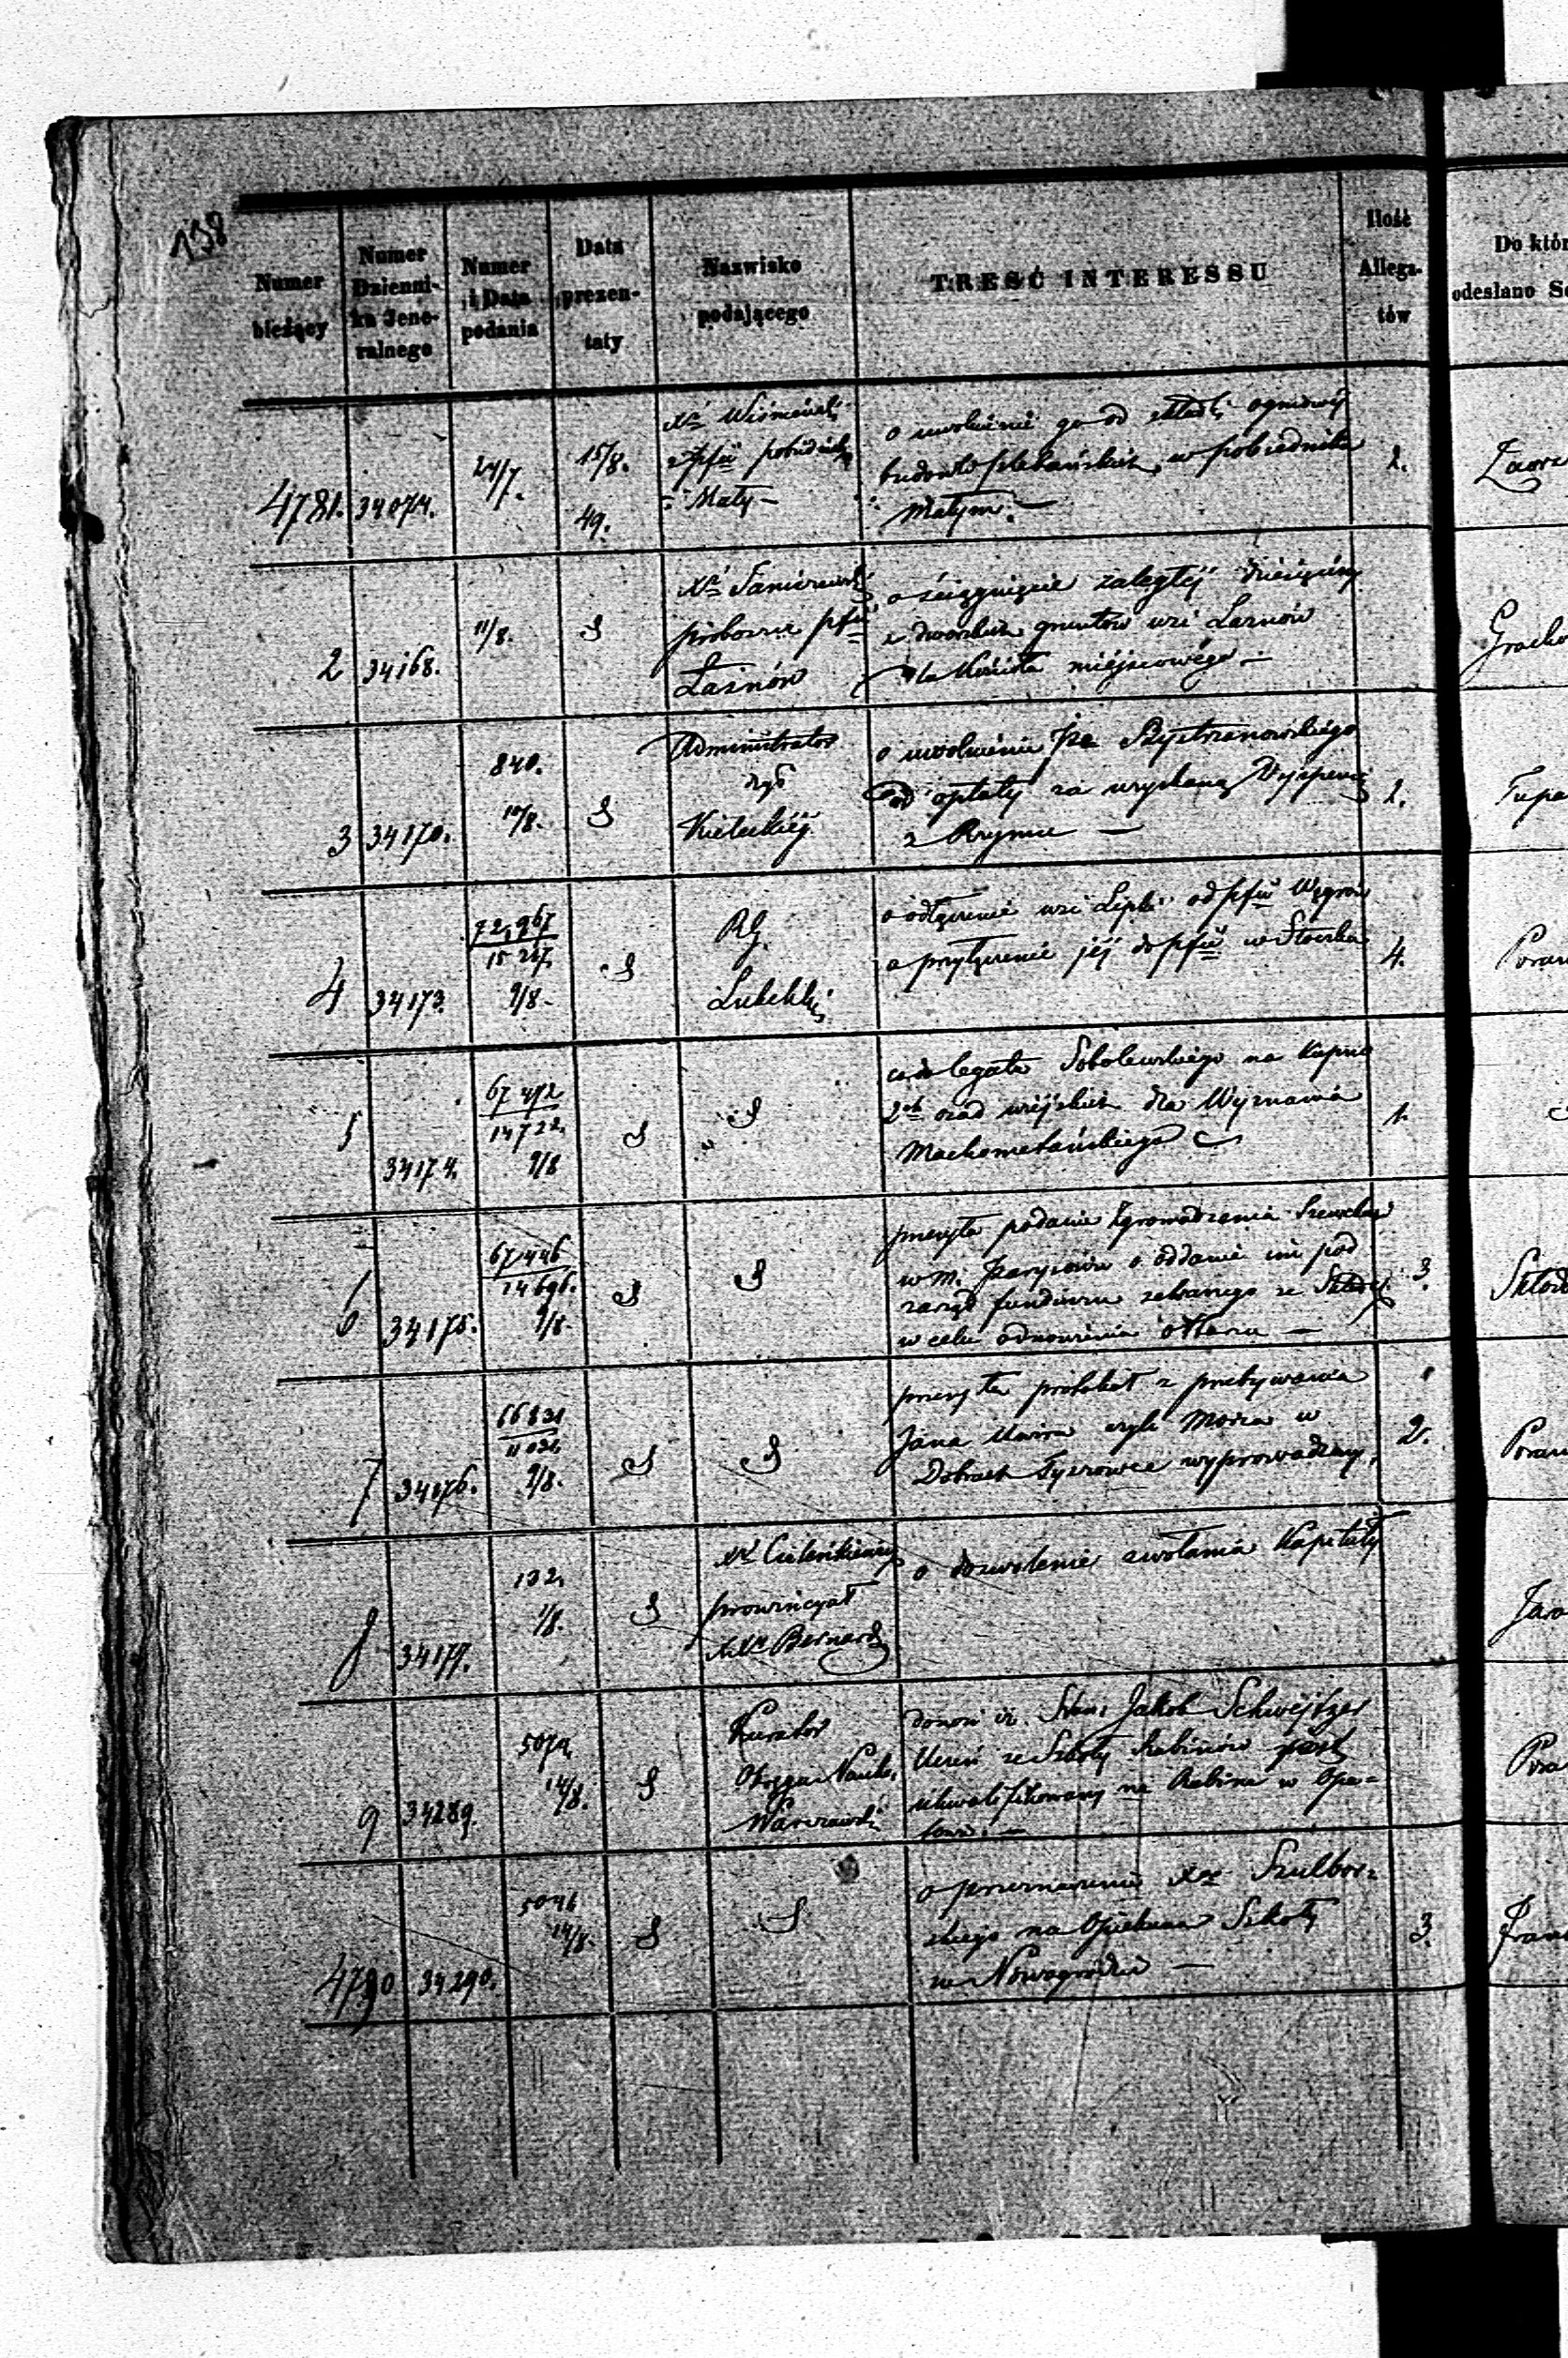 138
Numer bieżący
Numer Dziennika Jeneralnego
Numer i Data podania
Data prezentaty
Nazwisko podającego
TREŚĆ INTERESSU
Ilość Allegatów
Do któr
odesłano Se
4781. 34074. 24/7. 15/8. 49.
Xs
pffii
Mały –
o uwolnienie go od składki ogniowej
w pobiedniku
Małym. –
2.
2 34168. 11/8. S
Xs
proboszcz pffii
Łaznów
o ściągnięcie zaległej dziesięciny
z dworskich gruntów wsi Łaznów
dla Kościoła miejscowego –
3 34170. 840. 10/8. S
Administrator
dyć
Kieleckiej
o uwolnienie
od opłaty za uzyskaną Dyspensę
z Rzymu –
2.
4 34173. 72,967 / 15 217. 9/8 – S
RG.
Lubelski
o odłączenie wsi Lipki od pffii Węgrów
a przyłączenie jej do pffii w Stoczku
4.
5 34174. 67 472 / 14722. 9/8 S S
co do legatu Sobolewskiego na kupno
2ch osad wiejskich dla Wyznania
Machometańskiego
1.
6 34175. 67,446 / 14696. 9/8. S S
przesyła podanie Zgromadzenia Szewców
w m. Parysowie o oddanie im pod
zarząd funduszu zebranego ze Składki
w celu odnowienia ołtarza –
3.
7 34176. 66831 9/8. S S
przesyła protokół z przebywania
Jana
Dobrach Tyszowce wyprowadzony.
2.
8 34179. 132, 1/8. S
Xs
prowincyał
XXw Bernard
o dozwolenie zwołania Kapituły
9 34289. 5079, 14/8. S
Kurator
Okręgu Nauko.
Warszawski
donosi iż Star. Jakob Schwejtzer
Uczeń ze Szkoły Rabinów jest
ukwalifikowany na Rabina w Opa=
towie. –
4790 34290. 5046 14/8. S S
o przeznaczenie Xa Szulbor=
skiego na Opiekuna Szkoły
w Nowogrodzie –
3.